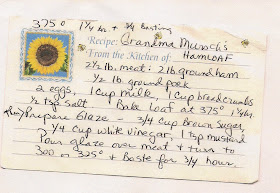 375° 1 1/4 hr. + 3/4 basting
Recipe: Grandma Musch's
From the Kitchen of: HAMLOAF
2 1/2 lb. meat: 2 lb. ground ham
1/2 lb. ground pork
2 eggs, 1 cup milk, 1 cup breadcrumbs
1/2 tsp salt Bake loaf at 375° 1 1/4 hr.
Prepare Glaze - 3/4 cup Brown Sugar,
1/4 cup white vinegar, 1 tsp mustard
Pour glaze over meat & turn to
300 or 325° & Baste for 3/4 hour